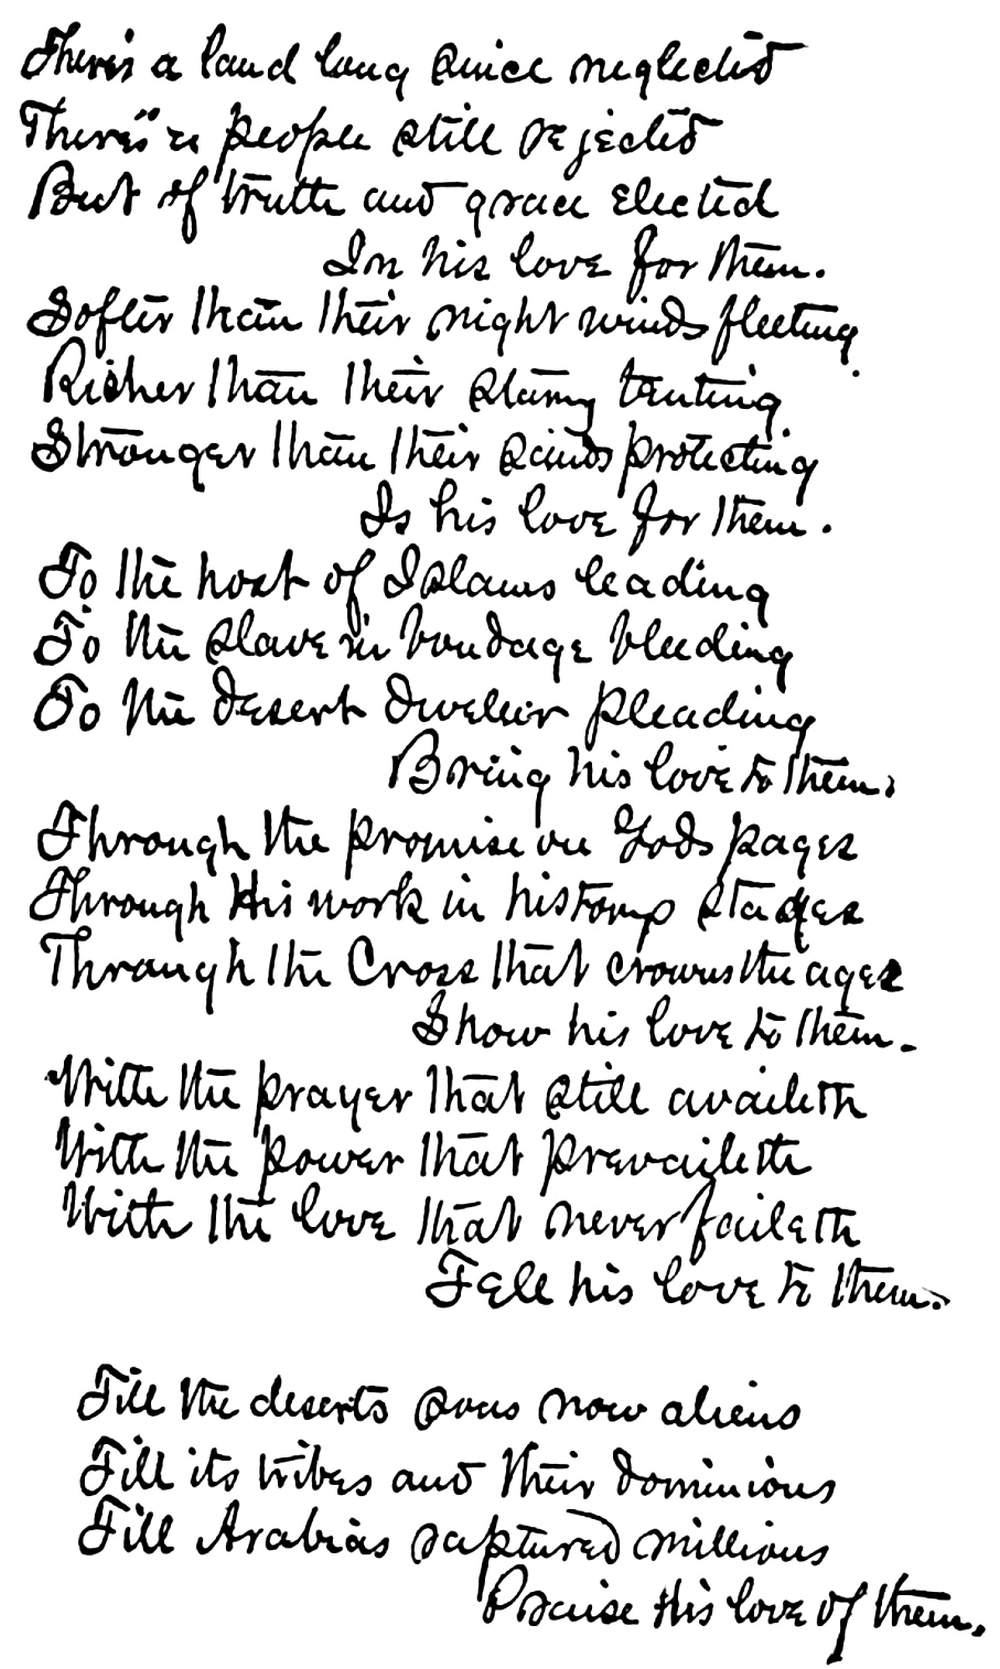 There's a land long since neglected
There's a people still rejected
But of truth and grace elected
In his love for them.
Softer than their night winds fleeting
Richer than their starry tenting
Stronger than their sands protecting
Is his love for them.
To the host of Islams leading
To the slave in bondage bleeding
To the desert dweller pleading
Bring his love to them.
Through the promise on Gods pages
Through His work in historys stages
Through the Cross that crowns the ages
Show his love to them.
With the prayer that still availeth
With the power that prevaileth
With the love that never faileth
Tell his love to them.
Till the deserts sons now aliens
Till its tribes and their dominions
Till Arabias raptured millions
Praise His love of them.